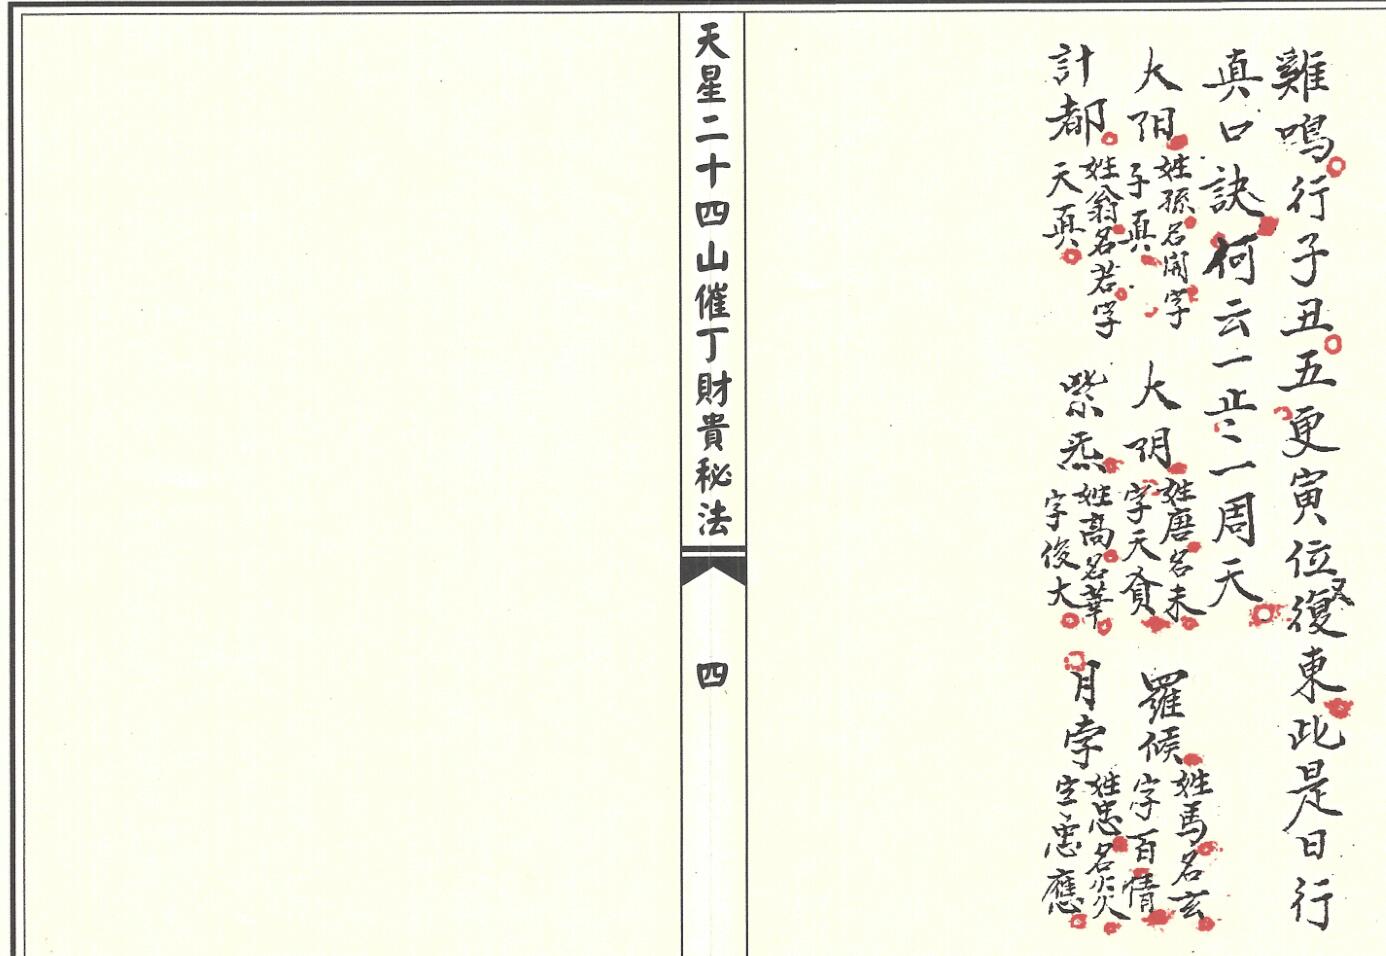 雞鳴行子丑五更寅位又復東此是日行
真口訣何云一止一周天
大阳姓孫名開字子真 大阴姓唐名未字天賁 羅候姓馬名玄字百倩
計都姓翁名若字天真 紫炁姓高名華字俊大 月孛姓忠名炎字忠應
天星二十四山催丁財貴秘法
四